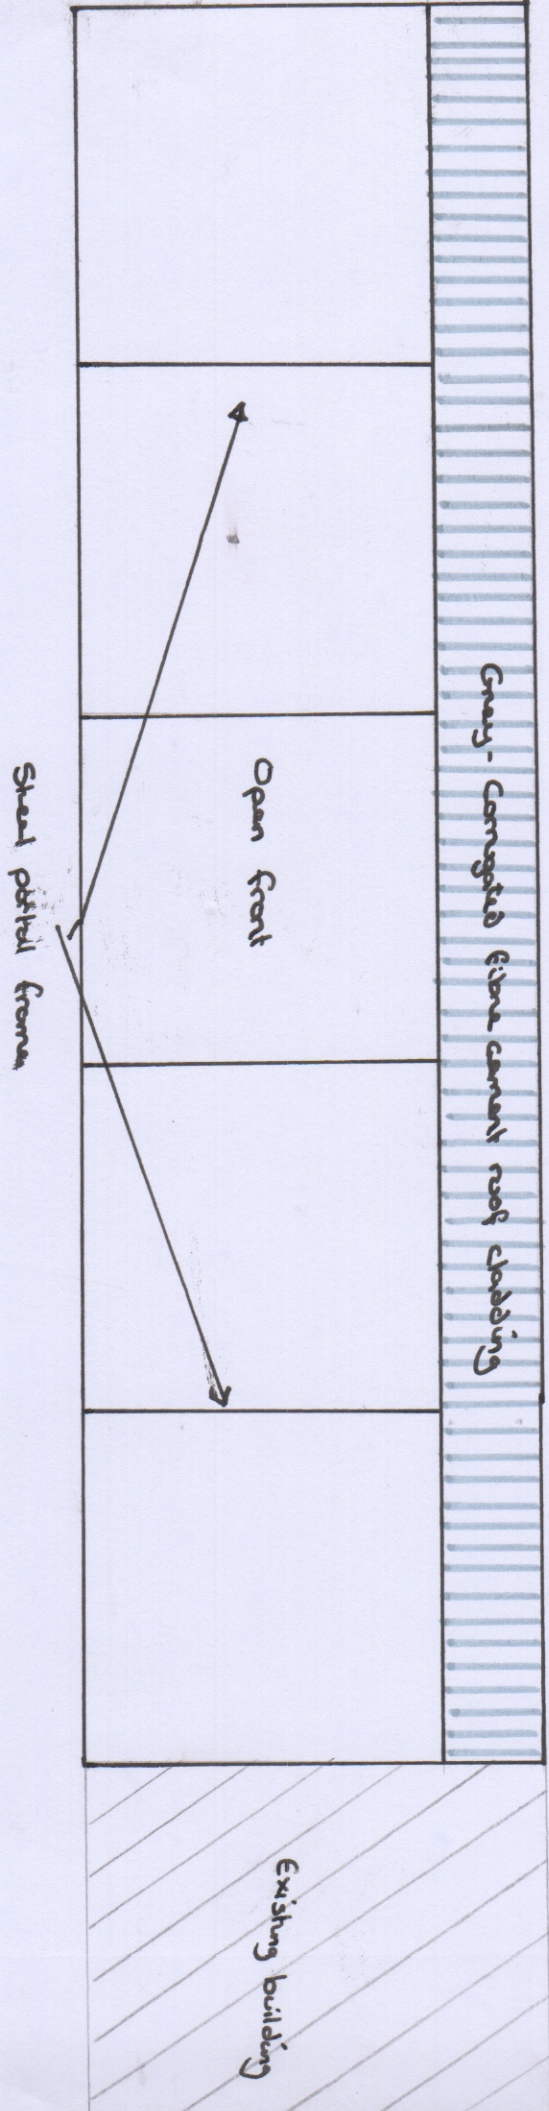 Grey - Corrugated fibre cement roof cladding
Open front
Steel portal frames
Existing building